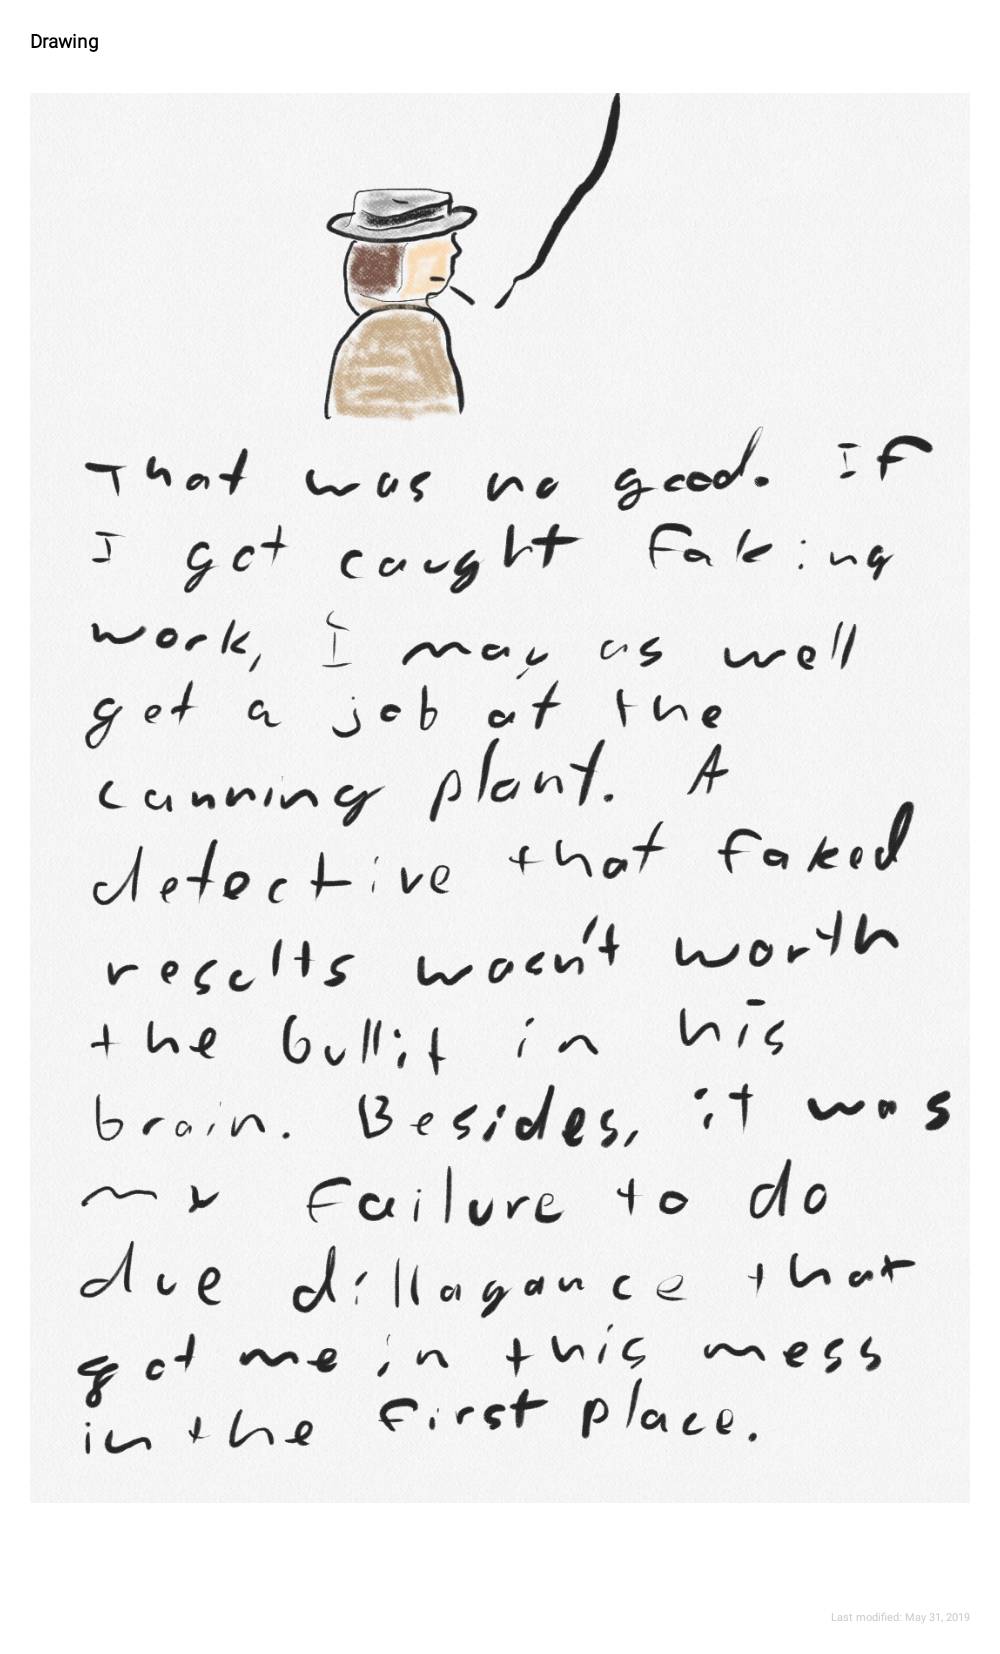 Drawing
That was no good. If
I got caught faking
work, I may as well
get a job at the
canning plant. A
detective that faked
results wasn't worth
the bullit in his
brain. Besides, it was
my failure to do
due dillagance that
got me in this mess
in the first place.
Last modified: May 31, 2019